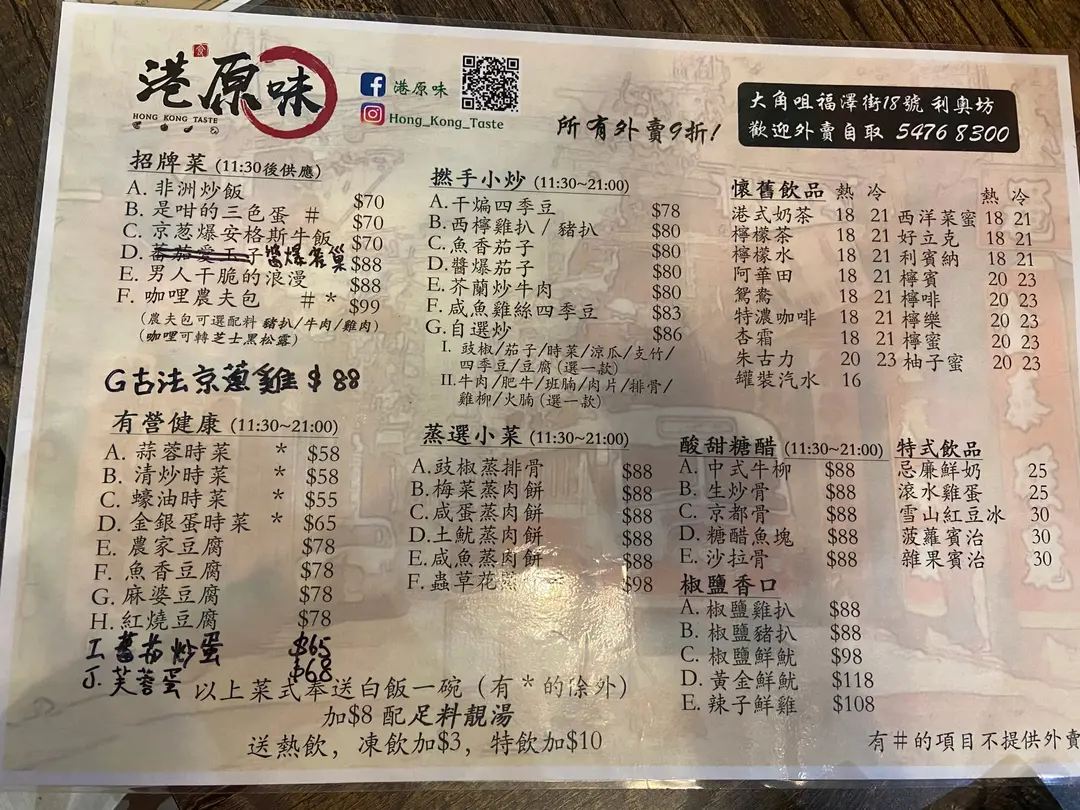 港原味
HONG KONG TASTE
港原味
Hong_Kong_Taste
所有外賣9折!
大角咀福澤街18號 利奧坊
歡迎外賣自取 5476 8300
招牌菜 (11:30後供應)
A. 非洲炒飯 $70
B. 是咁的三色蛋 # $70
C. 京葱爆安格斯牛飯 $70
D. 醬爆 $88
E. 男人干脆的浪漫 $88
F. 咖哩農夫包 # * $99
(農夫包可選配料 豬扒/牛肉/雞肉)
(咖哩可轉芝士黑松露)
G古法京蔥雞 $88
有營健康 (11:30~21:00)
A. 蒜蓉時菜 * $58
B. 清炒時菜 * $55
C. 蠔油時菜 * $55
D. 金銀蛋時菜 * $65
E. 農家豆腐 $78
F. 魚香豆腐 $78
G. 麻婆豆腐 $78
H. 紅燒豆腐 $78
I. 蕃茄炒蛋 $65
J. 芙蓉蛋 $68
撚手小炒 (11:30~21:00)
A. 干煸四季豆 $78
B. 西檸雞扒 / 豬扒 $80
C. 魚香茄子 $80
D. 醬爆茄子 $80
E. 芥蘭炒牛肉 $80
F. 咸魚雞絲四季豆 $83
G. 自選炒 $86
I. 豉椒/茄子/時菜/涼瓜/支竹/
四季豆/豆腐 (選一款)
II. 牛肉/肥牛/班腩/肉片/排骨/
雞柳/火腩 (選一款)
蒸選小菜 (11:30~21:00)
A.豉椒蒸排骨 $88
B.梅菜蒸肉餅 $88
C.咸蛋蒸肉餅 $88
D.土魷蒸肉餅 $88
E.咸魚蒸肉餅 $88
F. 蟲草花蒸 $98
懷舊飲品 熱 冷
港式奶茶 18 21
檸檬茶 18 21
檸檬水 18 21
阿華田 18 21
鴛鴦 18 21
特濃咖啡 18 21
杏霜 18 21
朱古力 20 23
罐裝汽水 16
熱 冷
西洋菜蜜 18 21
好立克 18 21
利賓納 18 21
檸賓 20 23
檸啡 20 23
檸樂 20 23
檸蜜 20 23
柚子蜜 20 23
酸甜糖醋 (11:30~21:00)
A. 中式牛柳 $88
B. 生炒骨 $88
C. 京都骨 $88
D. 糖醋魚塊 $88
E. 沙拉骨 $88
椒鹽香口
A. 椒鹽雞扒 $88
B. 椒鹽豬扒 $88
C. 椒鹽鮮魷 $98
D. 黃金鮮魷 $118
E. 辣子鮮雞 $108
特式飲品
忌廉鮮奶 25
滾水雞蛋 25
雪山紅豆冰 30
菠蘿賓治 30
雜果賓治 30
以上菜式奉送白飯一碗 (有 * 的除外)
加$8 配足料靚湯
送熱飲, 凍飲加$3, 特飲加$10
有#的項目不提供外賣